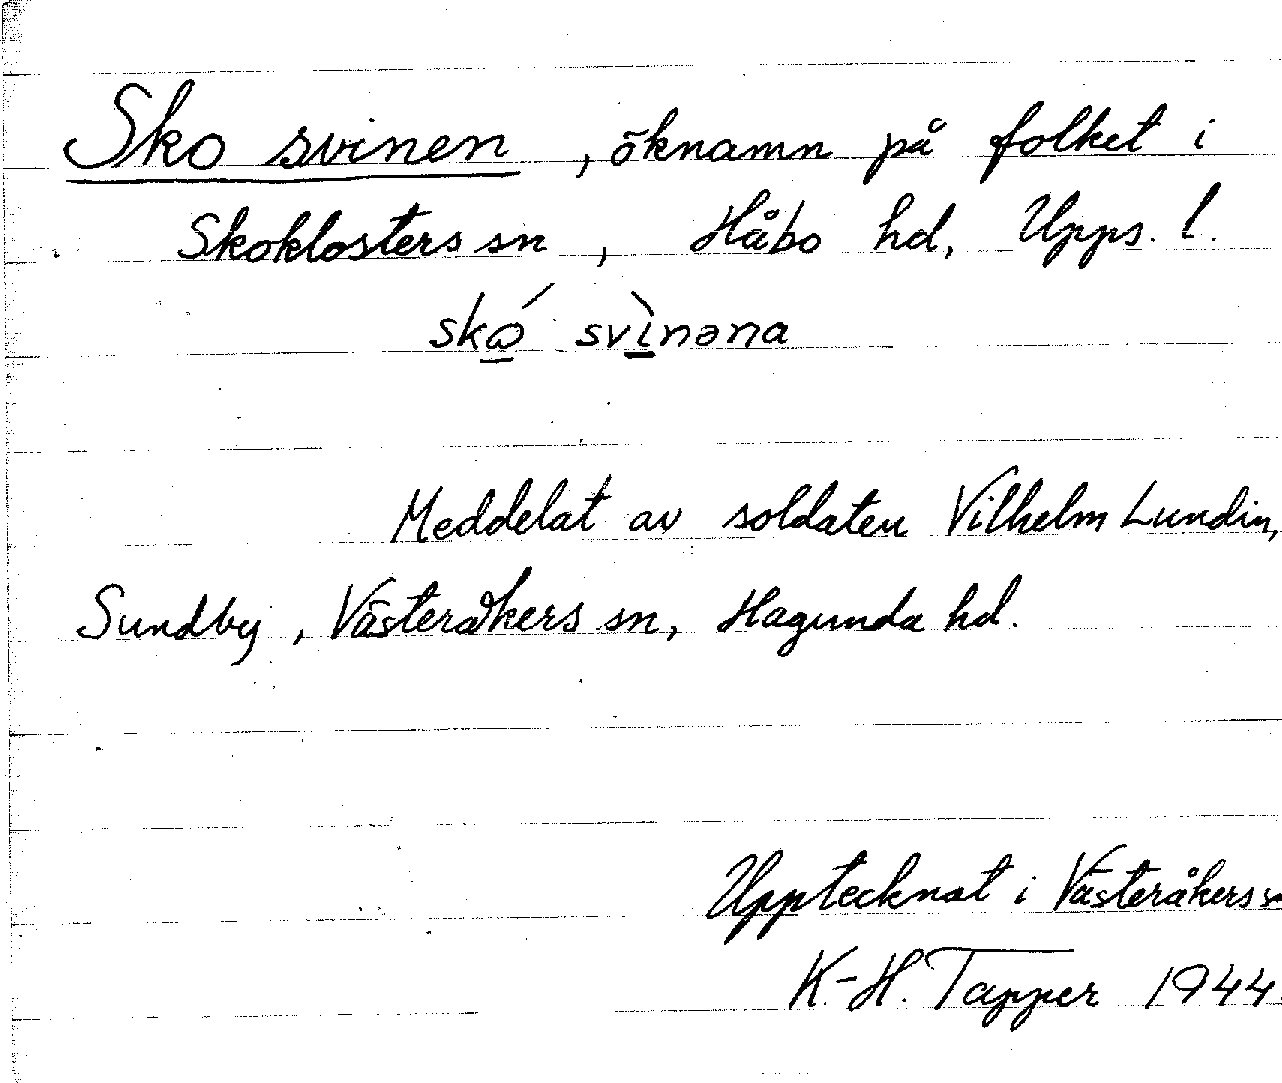 Sko svinen, öknamn på folket i
Skoklosters sn, Håbo hd, Upps. l.
skó svìnəna
Meddelat av soldaten Vilhelm Lundin,
Sundby, Västeråkers sn, Hagunda hd.
Upptecknat i Västeråkers s
K-H. Tapper 1944.